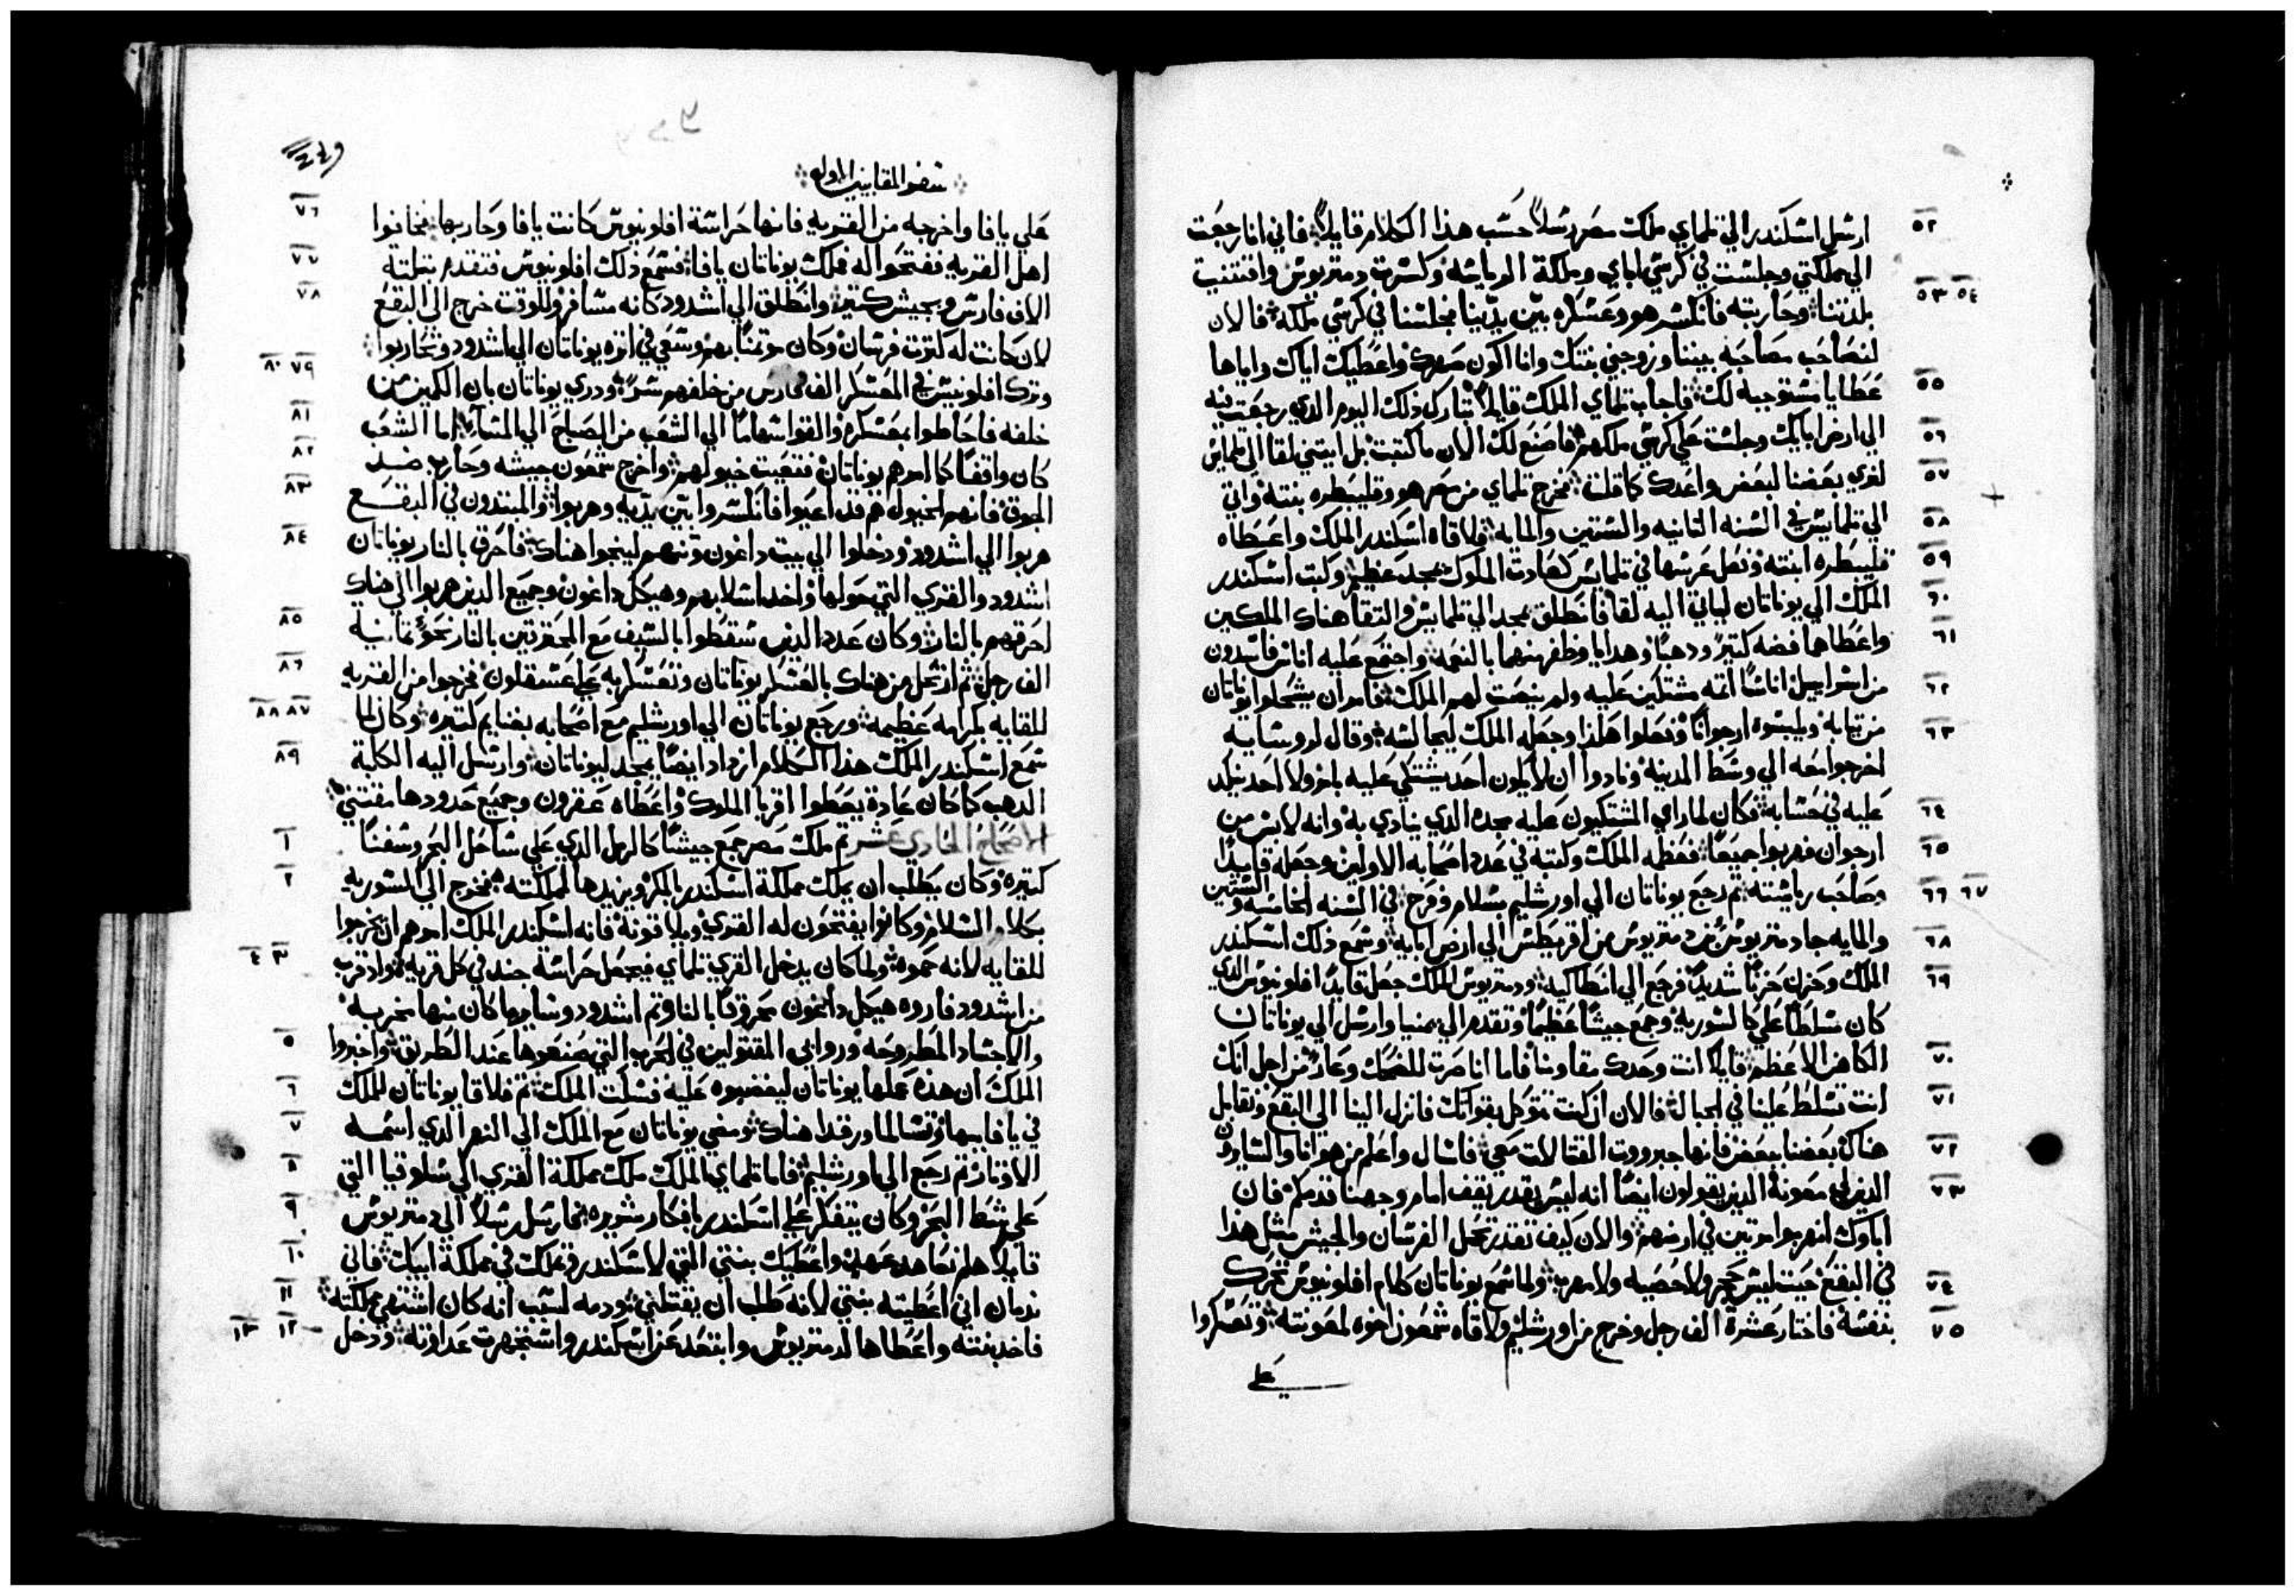 ٥٢ ارسل اسكندر الي تلماي ملك مصر رسلاً حسب هذا الكلام قايلاً فاني انا رجعت
الي مملكتي وجلست في كرسي اباي وملكة الرياسه وكسرت دمتريوس واقتنيت
٥٣ ٥٤ بلدتنا وحاربته فانكسر هو وعسكره بين يدينا فجلسنا في كرسي ملكه فالان
لنصاحب مصاحبه بيننا وزوجني بنتك وانا اكون صهرك واعطيك اياك واياها
٥٥ عطايا مستوجبه لك فاجاب تلماي الملك قايلاً تبارك ذلك اليوم الذي رجعت فيه
٥٦ الي ارض ابايك وجلست علي كرسي ملكهم فاصنع لك الان ما كتبت بل ايتني لقا الي تلمايس
٥٧ لنري بعضنا لبعض واعدك كما قلت فخرج تلماي من مصر هو وقليبطره بنته واتي
٥٨ الي تلمايس في السنه الثانيه والستين والمايه فلاقاه اسكندر الملك واعطاه
٥٩ قليبطره ابنته وفعل عرسها في تلمايس كعادت الملوك بمجد عظيم وكتب اسكندر
٦٠ الملك الي يوناتان لياتي اليه لقا فانطلق بمجد الي تلمايس والتقا هناك الملكين
٦١ واعطاهما فضه كتير ودهباً وهدايا وظفر منهما بالنعمه واجتمع عليه اناس فاسدون
٦٢ من اسراييل اناساً اتمه مشتكين عليه ولم ينصت لهم الملك فامر ان يشحلوا يوناتان
٦٣ من تيابه ويلبسوه ارجواناً ففعلوا هكذا وجعله الملك ليجالسه وقال لروسايه
اخرجوا معه الي وسط المدينه ونادوا ان لا يكون احد يشتكي عليه بامر ولا احد ينكد
٦٤ عليه في حسابه فكان لما راي المشتكيون عليه مجده الذي ينادي به وانه لابس من
٦٥ ارجوان فهربوا جميعاً فعظمه الملك وكتبه في عدد اصحابه الاولين وجعله قايداً
٦٦ ٦٧ وصاحب رياسته تم رجع يوناتان الي اورشليم بسلام وفرح في السنه الخامسه والستين
٦٨ والمايه جا دمتريوس بن دمتريوس من اقريطش الي ارض ابايه وسمع ذلك اسكندر
٦٩ الملك وحزن حزناً شديداً فرجع الي انطاكيه ودمتريوس الملك جعل قايداً افلونيوس الذي
كان مسلطاً علي كالسوريه وجمع جيشاً عظيماً وتقدم الي يمنيا وارسل الي يوناتان
٧٠ الكاهن الاعظم قايلاً انت وحدك مقاومنا فاما انا صرت للضحك وعار من اجل انك
٧١ انت تسلط علينا في الجبال فالان ان كنت تتوكل بقواتك فانزل الينا الي البقع ونقابل
٧٢ هناك بعضنا ببعض فانها جبرووت القتالات معي فاسال واعلم من هو انا والسايرون
٧٣ الذين لي معونة الذين يقولون ايضاً انه ليس يقدر يقف امام وجهنا قدمكم فان
اباوك انهربوا مرتين في ارضهم والان كيف تقدر تحمل الفرسان والجيش مثل هذا
٧٤ في البقع حيت ليس حجر ولا حصيه ولا مهرب ولما سمع يوناتان كلام افلونيوس تحرك
٧٥ بنفسه فاختار عشرة الف رجل وخرج من اورشليم ولاقاه شمعون اخوه لمعونته وتعسكروا
علي
سفر المقابيين الاول
٤٤٩
٧٦ علي يافا واخرجه من القريه فانها حراسة افلونيوس كانت يافا وحاربها فخافوا
٧٧ اهل القريه ففتحوا له فملك يوناتان يافا فسمع ذلك افلونيوس فتقدم بتلتة
٧٨ الاف فارس وبجيش كتير وانطلق الي اشدود كانه مسافر وللوقت خرج الي البقع
لان كانت له كترت فرسان وكان موتمناً بهم وسعي في اتره يوناتان الي اشدود وتحاربوا
٧٩ ٨٠ وترك افلونيس في المعسكر الف فارس من خلفهم سراً ودري يوناتان بان الكمين من
٨١ خلفه فاحاطوا بمعسكره والقوا سهاماً الي الشعب من الصباح الي المساء اما الشعب
٨٢ كان واقفاً كما امرهم يوناتان فتعبت خيولهم واخرج شمعون جيشه وحارب ضد
٨٣ الجوق فانهم الخيول هم قد اعيوا فانكسروا بين يديه وهربوا والمبتددون في البقع
٨٤ هربوا الي اشدود ودخلوا الي بيت داغون وتنهم لينجوا هناك فاحرق بالنار يوناتان
اشدود والقري التي حولها واخد اسلابهم وهيكل داغون وجميع الذين هربوا الي هناك
٨٥ احرقهم بالنار وكان عدد الذين سقطوا بالسيف مع المحترقين بالنار نحو تمانية
٨٦ الف رجل تم ارتحل من هناك بالعسكر يوناتان وتعسكر به علي عسقلون فخرجوا من القريه
٨٧ ٨٨ للقايه بكرامه عظيمه ورجع يوناتان الي اورشليم مع اصحابه بغنايم كتيره وكان لما
٨٩ سمع اسكندر الملك هذا الكلام ازداد ايضاً بمجد ليوناتان وارسل اليه الكلبة
الدهب كما كان عادة يعطوا اقربا الملوك واعطاه عقرون وجميع حدودها مقتني
١ الاصحاح الحادي عشر تم ملك مصر جمع جيشاً كالرمل الذي علي ساحل البحر وسفناً
٢ كتيره وكان يطلب ان يملك مملكة اسكندر بالمكر ويزيدها لمملكته فخرج الي السوريه
بكلام السلام وكانوا يفتحون له القري ويلاقونه فانه اسكندر الملك امرهم ان يخرجوا
٣ ٤ للقايه لانه حموه ولما كان يدخل القري تلماي فيجعل حراسة جند في كل قريه واد قرب
من اشدود فاروه هيكل داغون محروقاً بالنار تم اشدود وسايرها كان منها مخربه
٥ والاجساد المطروحه وروابي المقتولين في الحرب التي صنعوها عند الطريق واخبروا
٦ الملك ان هذه عملها يوناتان ليغضبوه عليه فسكت الملك تم فلاقا يوناتان للملك
٧ في يافا ببها وتسالما ورقدا هناك ومضي يوناتان مع الملك الي النهر الذي اسمه
٨ الاوتار تم رجع الي اورشليم فاما تلماي الملك ملك مملكة القري الي سلوقيا التي
٩ علي شط البحر وكان يتفكر علي اسكندر بافكار شريره فارسل رسلاً الي دمتريوس
١٠ قايلاً هلم نعاهد عهد واعطيك بنتي التي لاسكندر وتملك في مملكة ابيك فاني
١١ ندمان اني اعطيته بنتي لانه طلب ان يقتلني ودمه لسبب انه كان اشتهي مملكته
١٢ ١٣ فاخد بنته واعطاها لدمتريوس وابتعد عن اسكندر واستجهرت عداوته ودخل